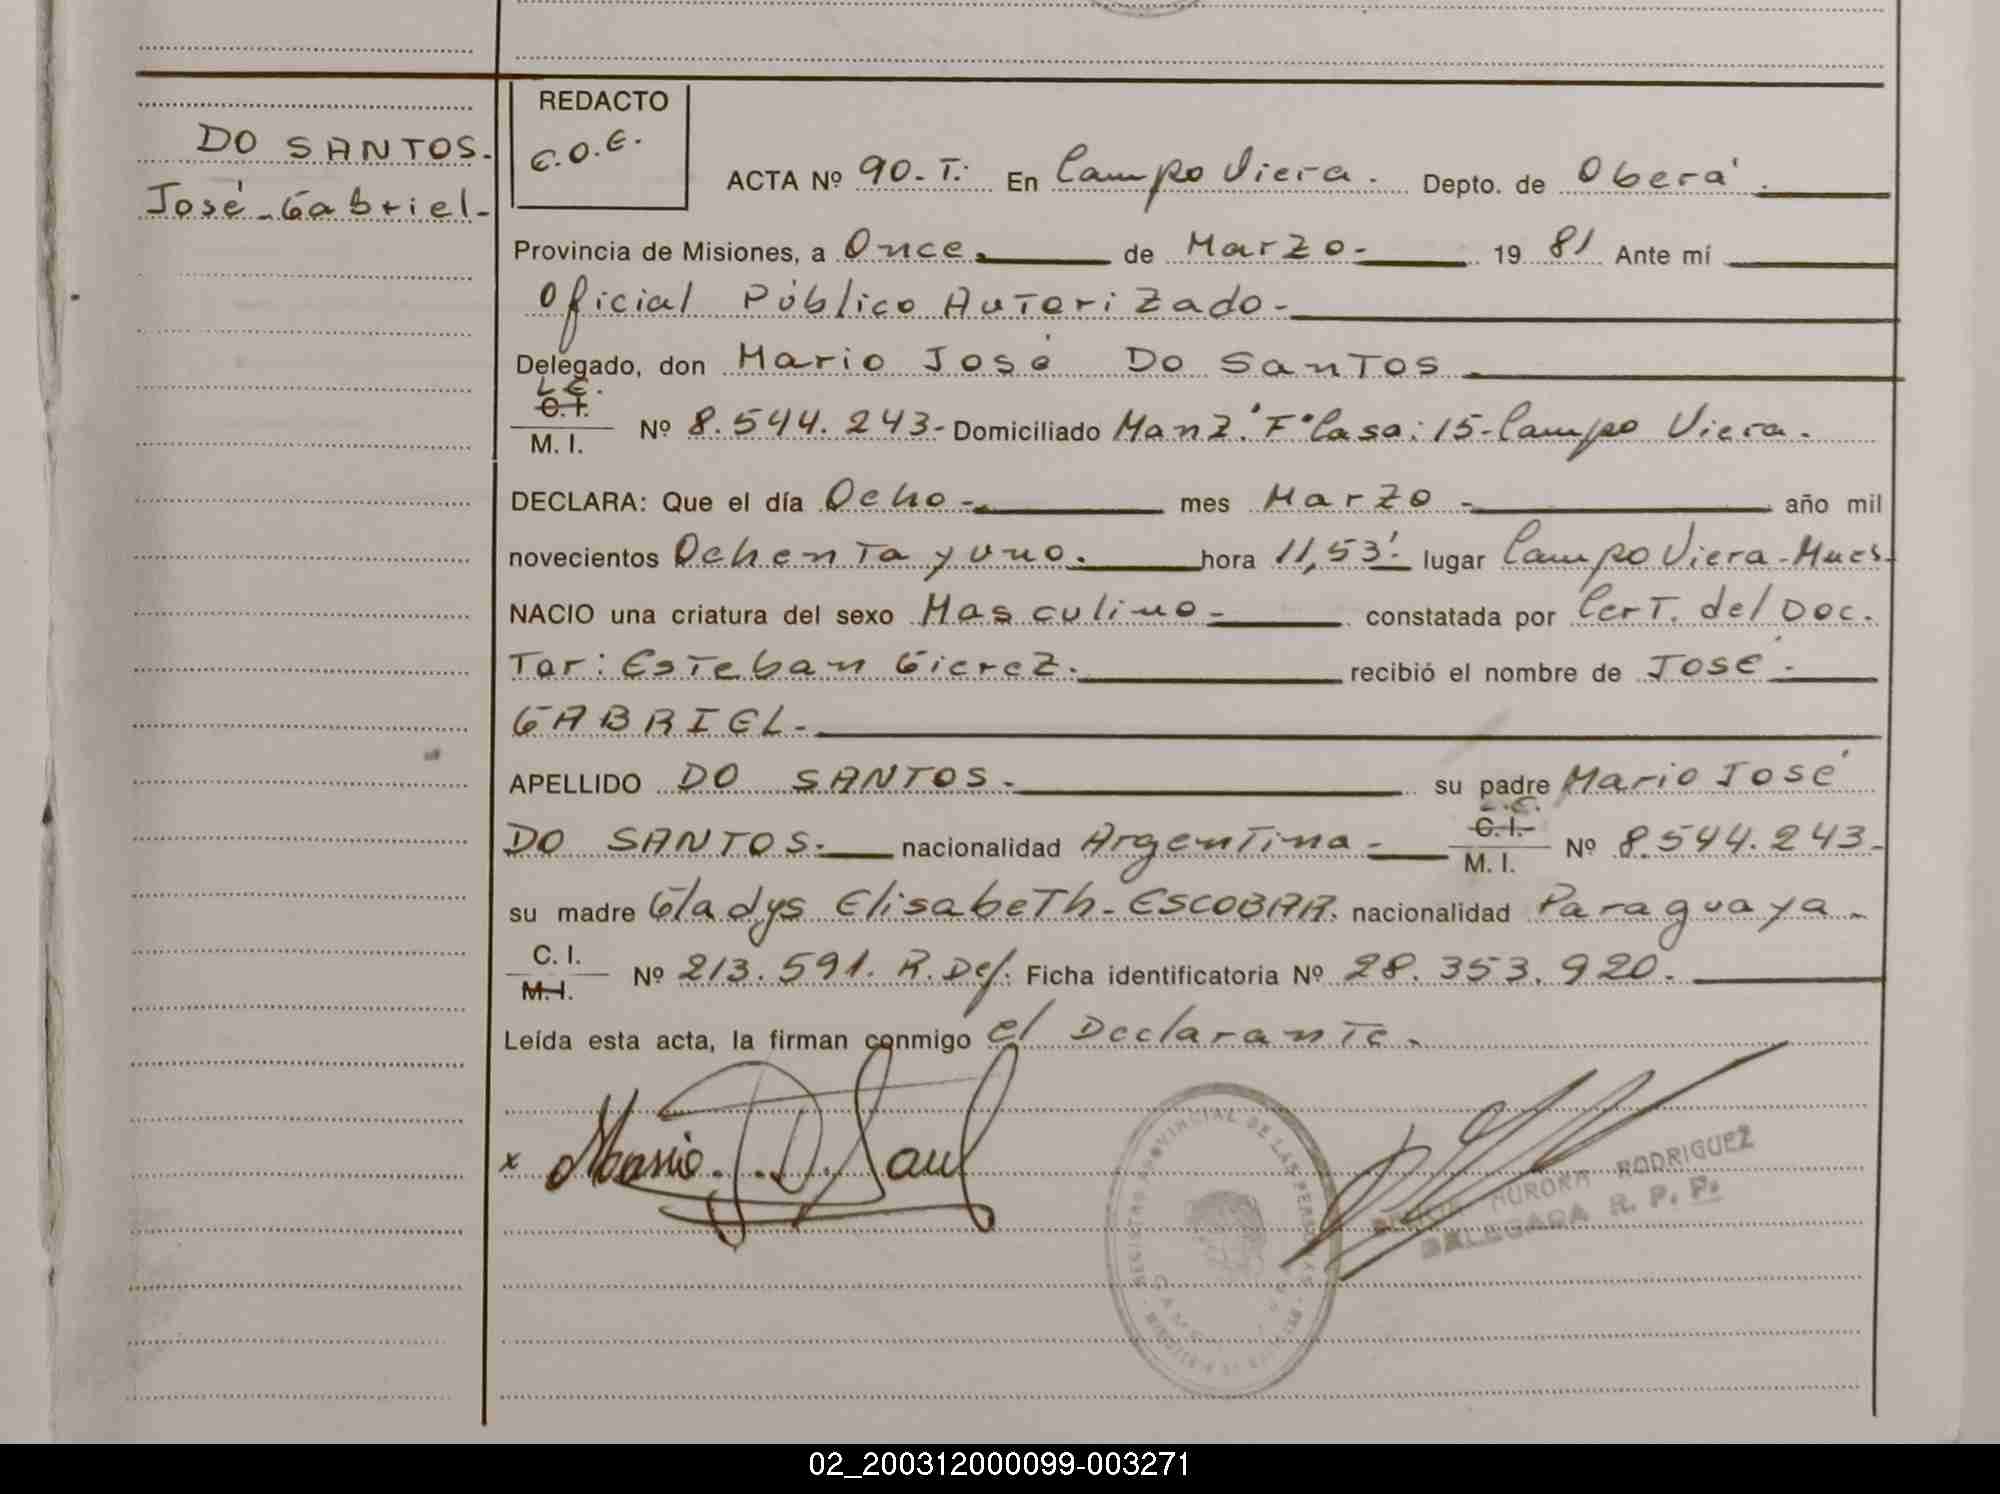 DO SANTOS.
José-Gabriel-
REDACTO
C.O.E.
ACTA Nº 90-T. En Campo Viera. Depto. de Oberá.
Provincia de Misiones, a Once. de Marzo- 19 81 Ante mí
Oficial Público Autorizado-
Delegado, don Mario José Do Santos
L.E.
C.I.
M. I.
Nº 8.544.243- Domiciliado Manz. "F" Casa: 15-Campo Viera.
DECLARA: Que el día Ocho- mes Marzo- año mil
novecientos Ochenta y uno. hora 11,53' lugar Campo Viera-Mnes-
NACIO una criatura del sexo Masculino- constatada por Cert. del Doc.
Tor: Esteban Gierez. recibió el nombre de José-
GABRIEL-
APELLIDO DO SANTOS- su padre Mario José
L.E.
DO SANTOS. nacionalidad Argentina- C.I. M. I. Nº 8.544.243-
su madre Gladys Elisabeth-ESCOBAR. nacionalidad Paraguaya-
C. I.
M.I.
Nº 213.591. R.Def. Ficha identificatoria Nº 28.353.920-
Leída esta acta, la firman conmigo el Declarante.
x Mario. D. Sant
REGISTRO PROVINCIAL DE LAS PERSONAS
AURORA RODRIGUEZ
DELEGADA R. P. P.
02_200312000099-003271